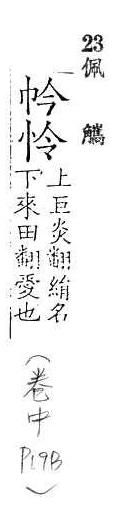 23佩觿
㠴怜上巨炎翻絹名
下來田翻愛也
（卷中
P19B）